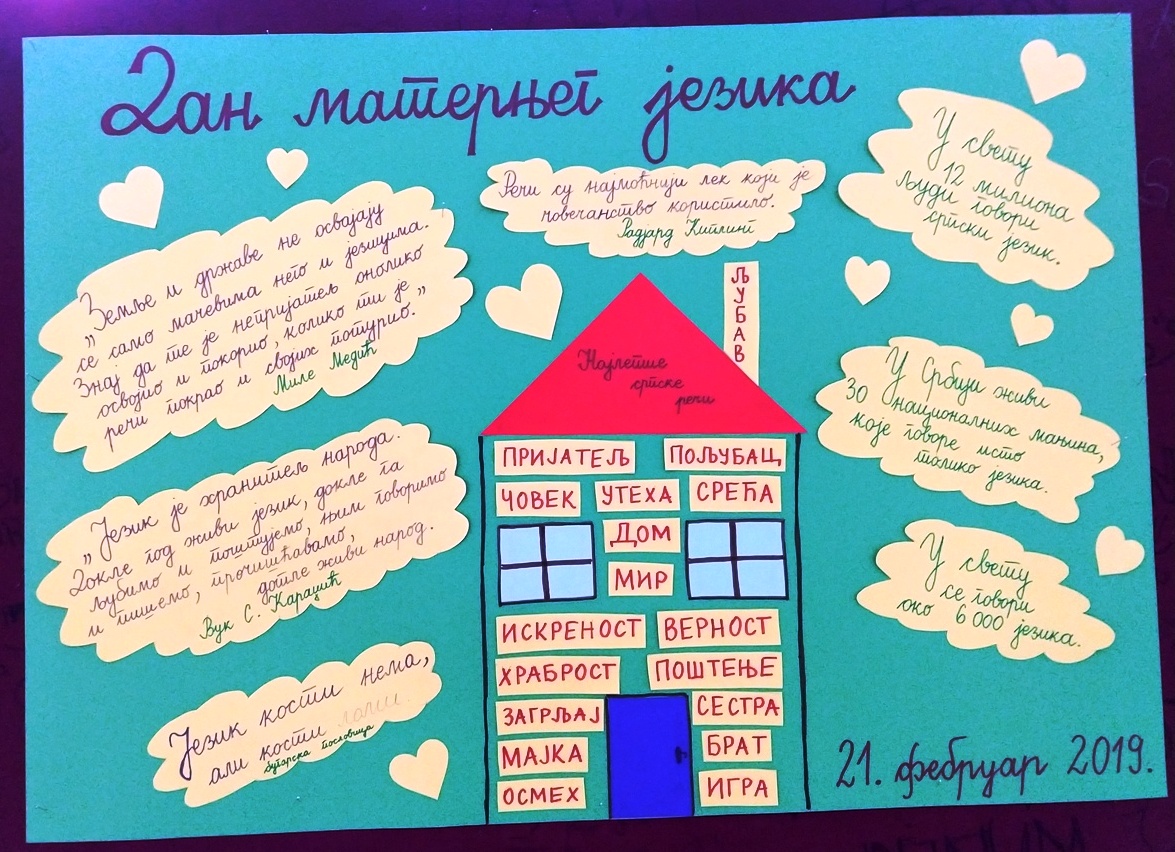 Дан матерњег језика
„Земље и државе не освајају
се само мачевима него и језицима.
Знај да те је непријатељ онолико
освојио и покорио, колико ти је
речи покрао и својих потурио.”
Миле Медић
„Језик је хранитељ народа.
Докле год живи језик, докле га
љубимо и поштујемо, њим говоримо
и пишемо, прочишћавамо,
дотле живи народ.
Вук С. Караџић
Језик кости нема,
али кости ломи.
бугарска пословица
Речи су најмоћнији лек који је
човечанство користило.
Радјард Киплинг
ЉУБАВ
Најлепше
српске
речи
ПРИЈАТЕЉ ПОЉУБАЦ
ЧОВЕК УТЕХА СРЕЋА
ДОМ
МИР
ИСКРЕНОСТ ВЕРНОСТ
ХРАБРОСТ ПОШТЕЊЕ
ЗАГРЉАЈ СЕСТРА
МАЈКА БРАТ
ОСМЕХ ИГРА
У свету
12 милиона
људи говори
српски језик.
У Србији живи
30 националних мањина,
које говоре исто
толико језика.
У свету
се говори
око 6 000 језика.
21. фебруар 2019.